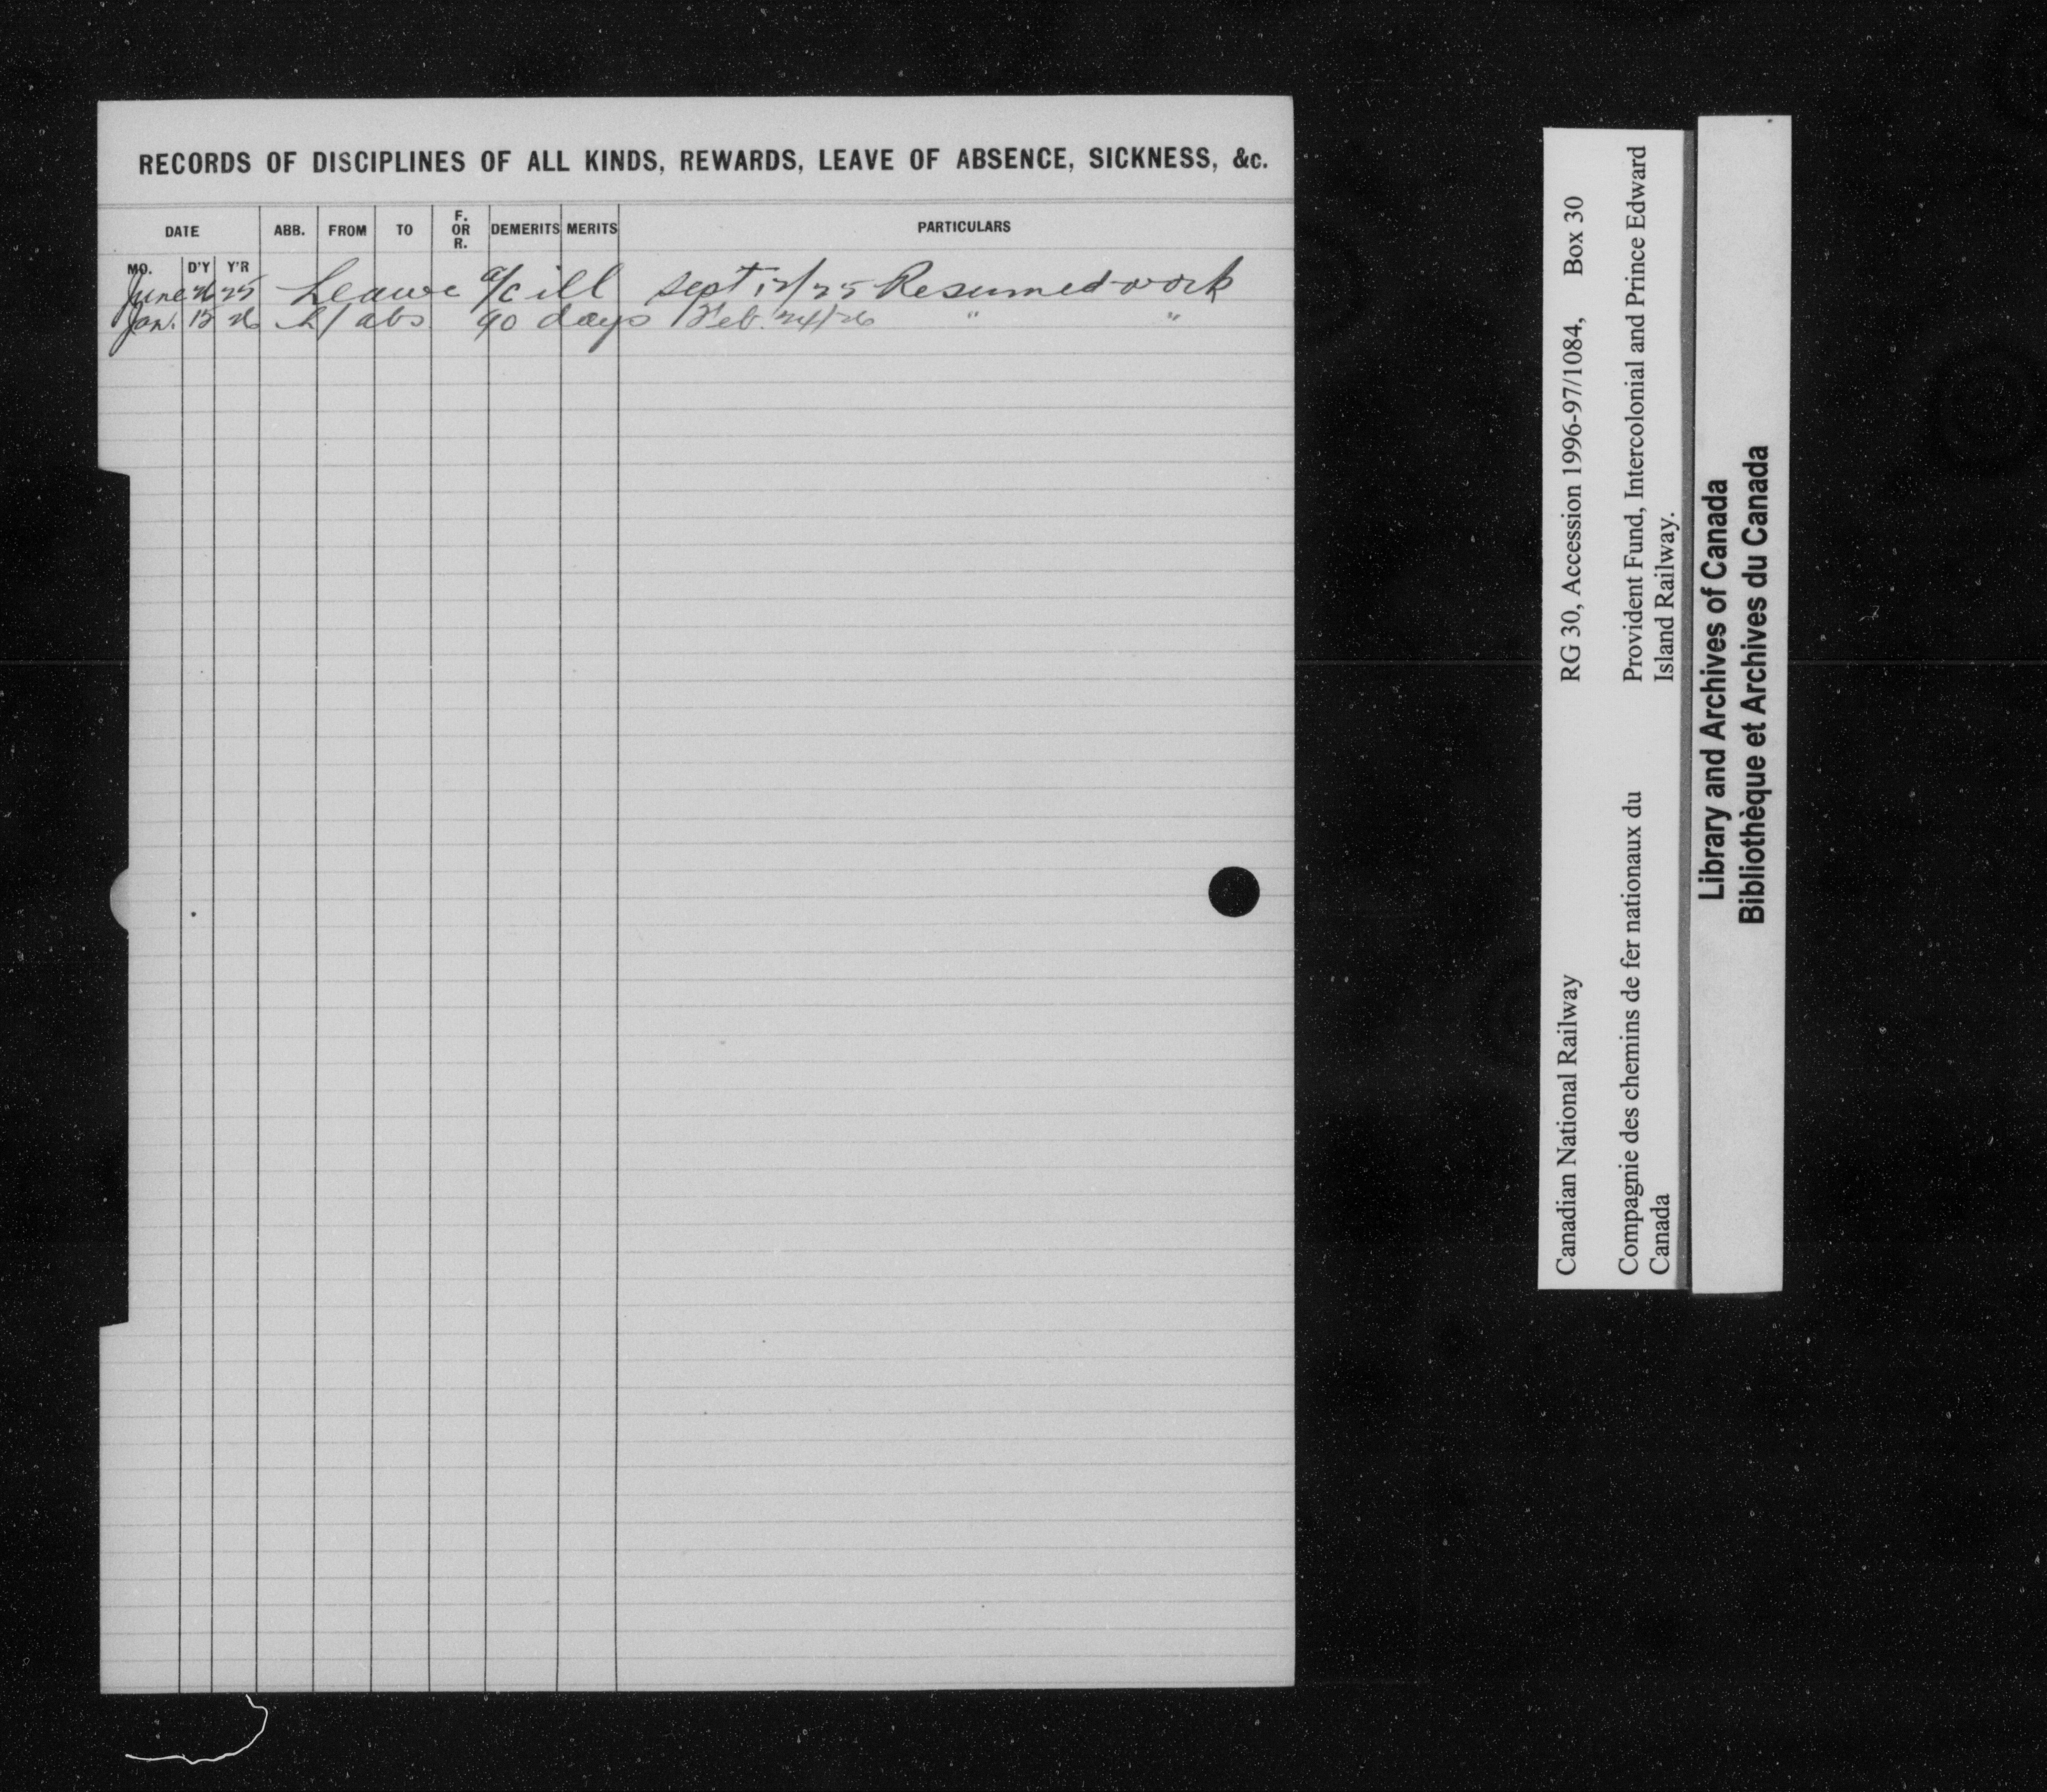 RECORDS OF DISCIPLINES OF ALL KINDS, REWARDS, LEAVE OF ABSENCE, SICKNESS, &c.
DATE ABB. FROM TO F. OR R. DEMERITS MERITS PARTICULARS
MO. D'Y Y'R
June 26 25 Leave a/c ill Sept 12/25 Resumed work
Jan. 12 26 L/abs. 90 days Feb. 24/26 " "
RG 30, Accession 1996-97/1084, Box 30
Provident Fund, Intercolonial and Prince Edward
Island Railway.
Canadian National Railway
Compagnie des chemins de fer nationaux du
Canada
Library and Archives of Canada
Bibliothèque et Archives du Canada